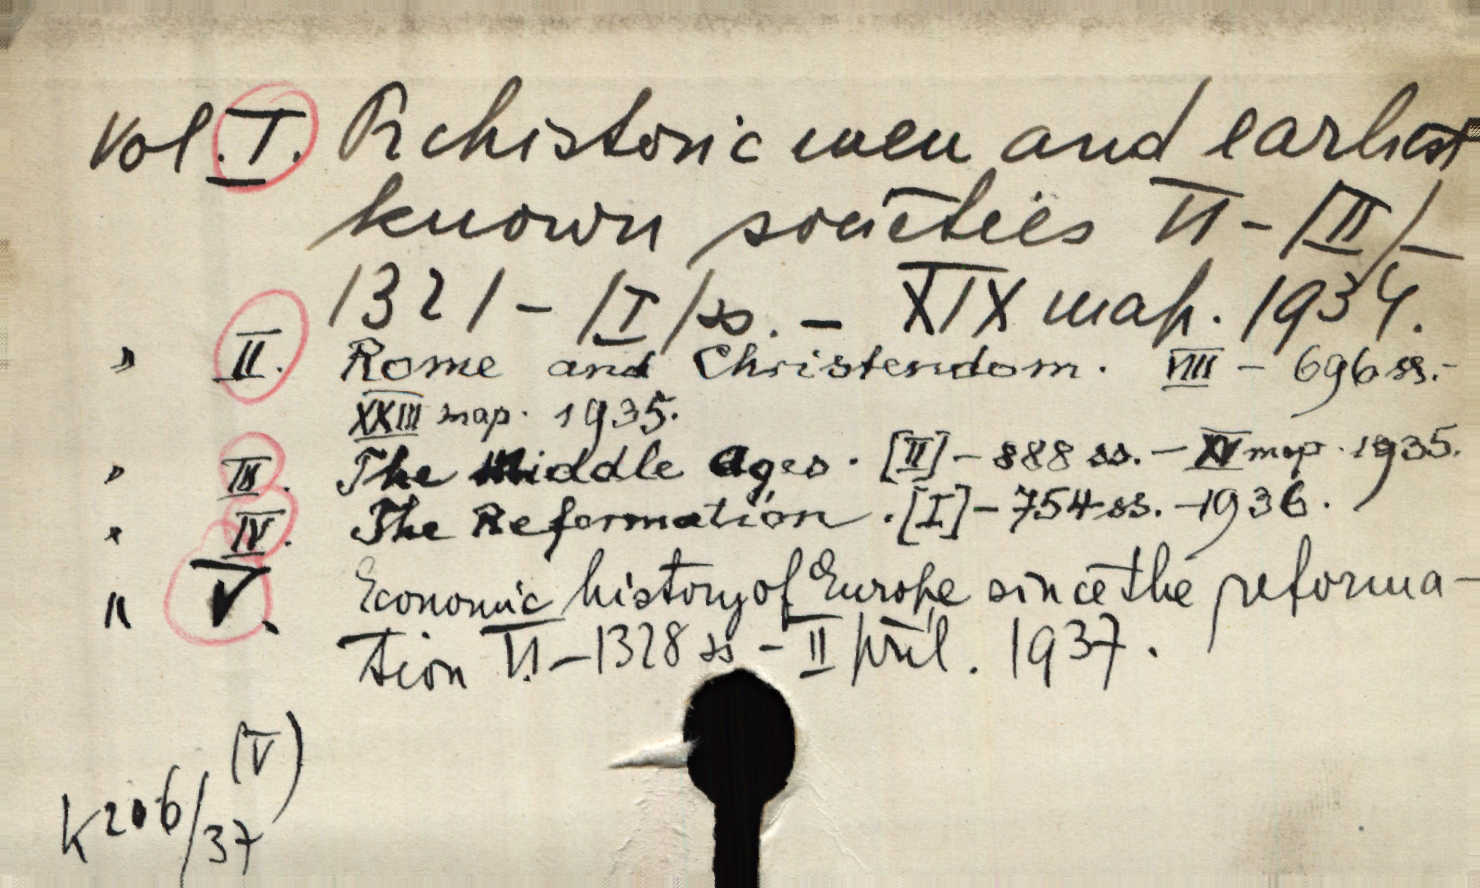 Vol. I. Prehistoric men and earliest
known societies VI - [II] -
1321 - [I] ss. - XIX map. 1934.
" II. Rome and Christendom. VIII - 696 ss. -
XXIII map. 1935.
" III. The Middle Ages. [II] - 888 ss. - XV map. 1935.
" IV. The Reformation. [I] - 754 ss. - 1936.
" V. Economic history of Europe since the reforma-
tion VI - 1328 ss - II pril. 1937.
(V)
K 206/37